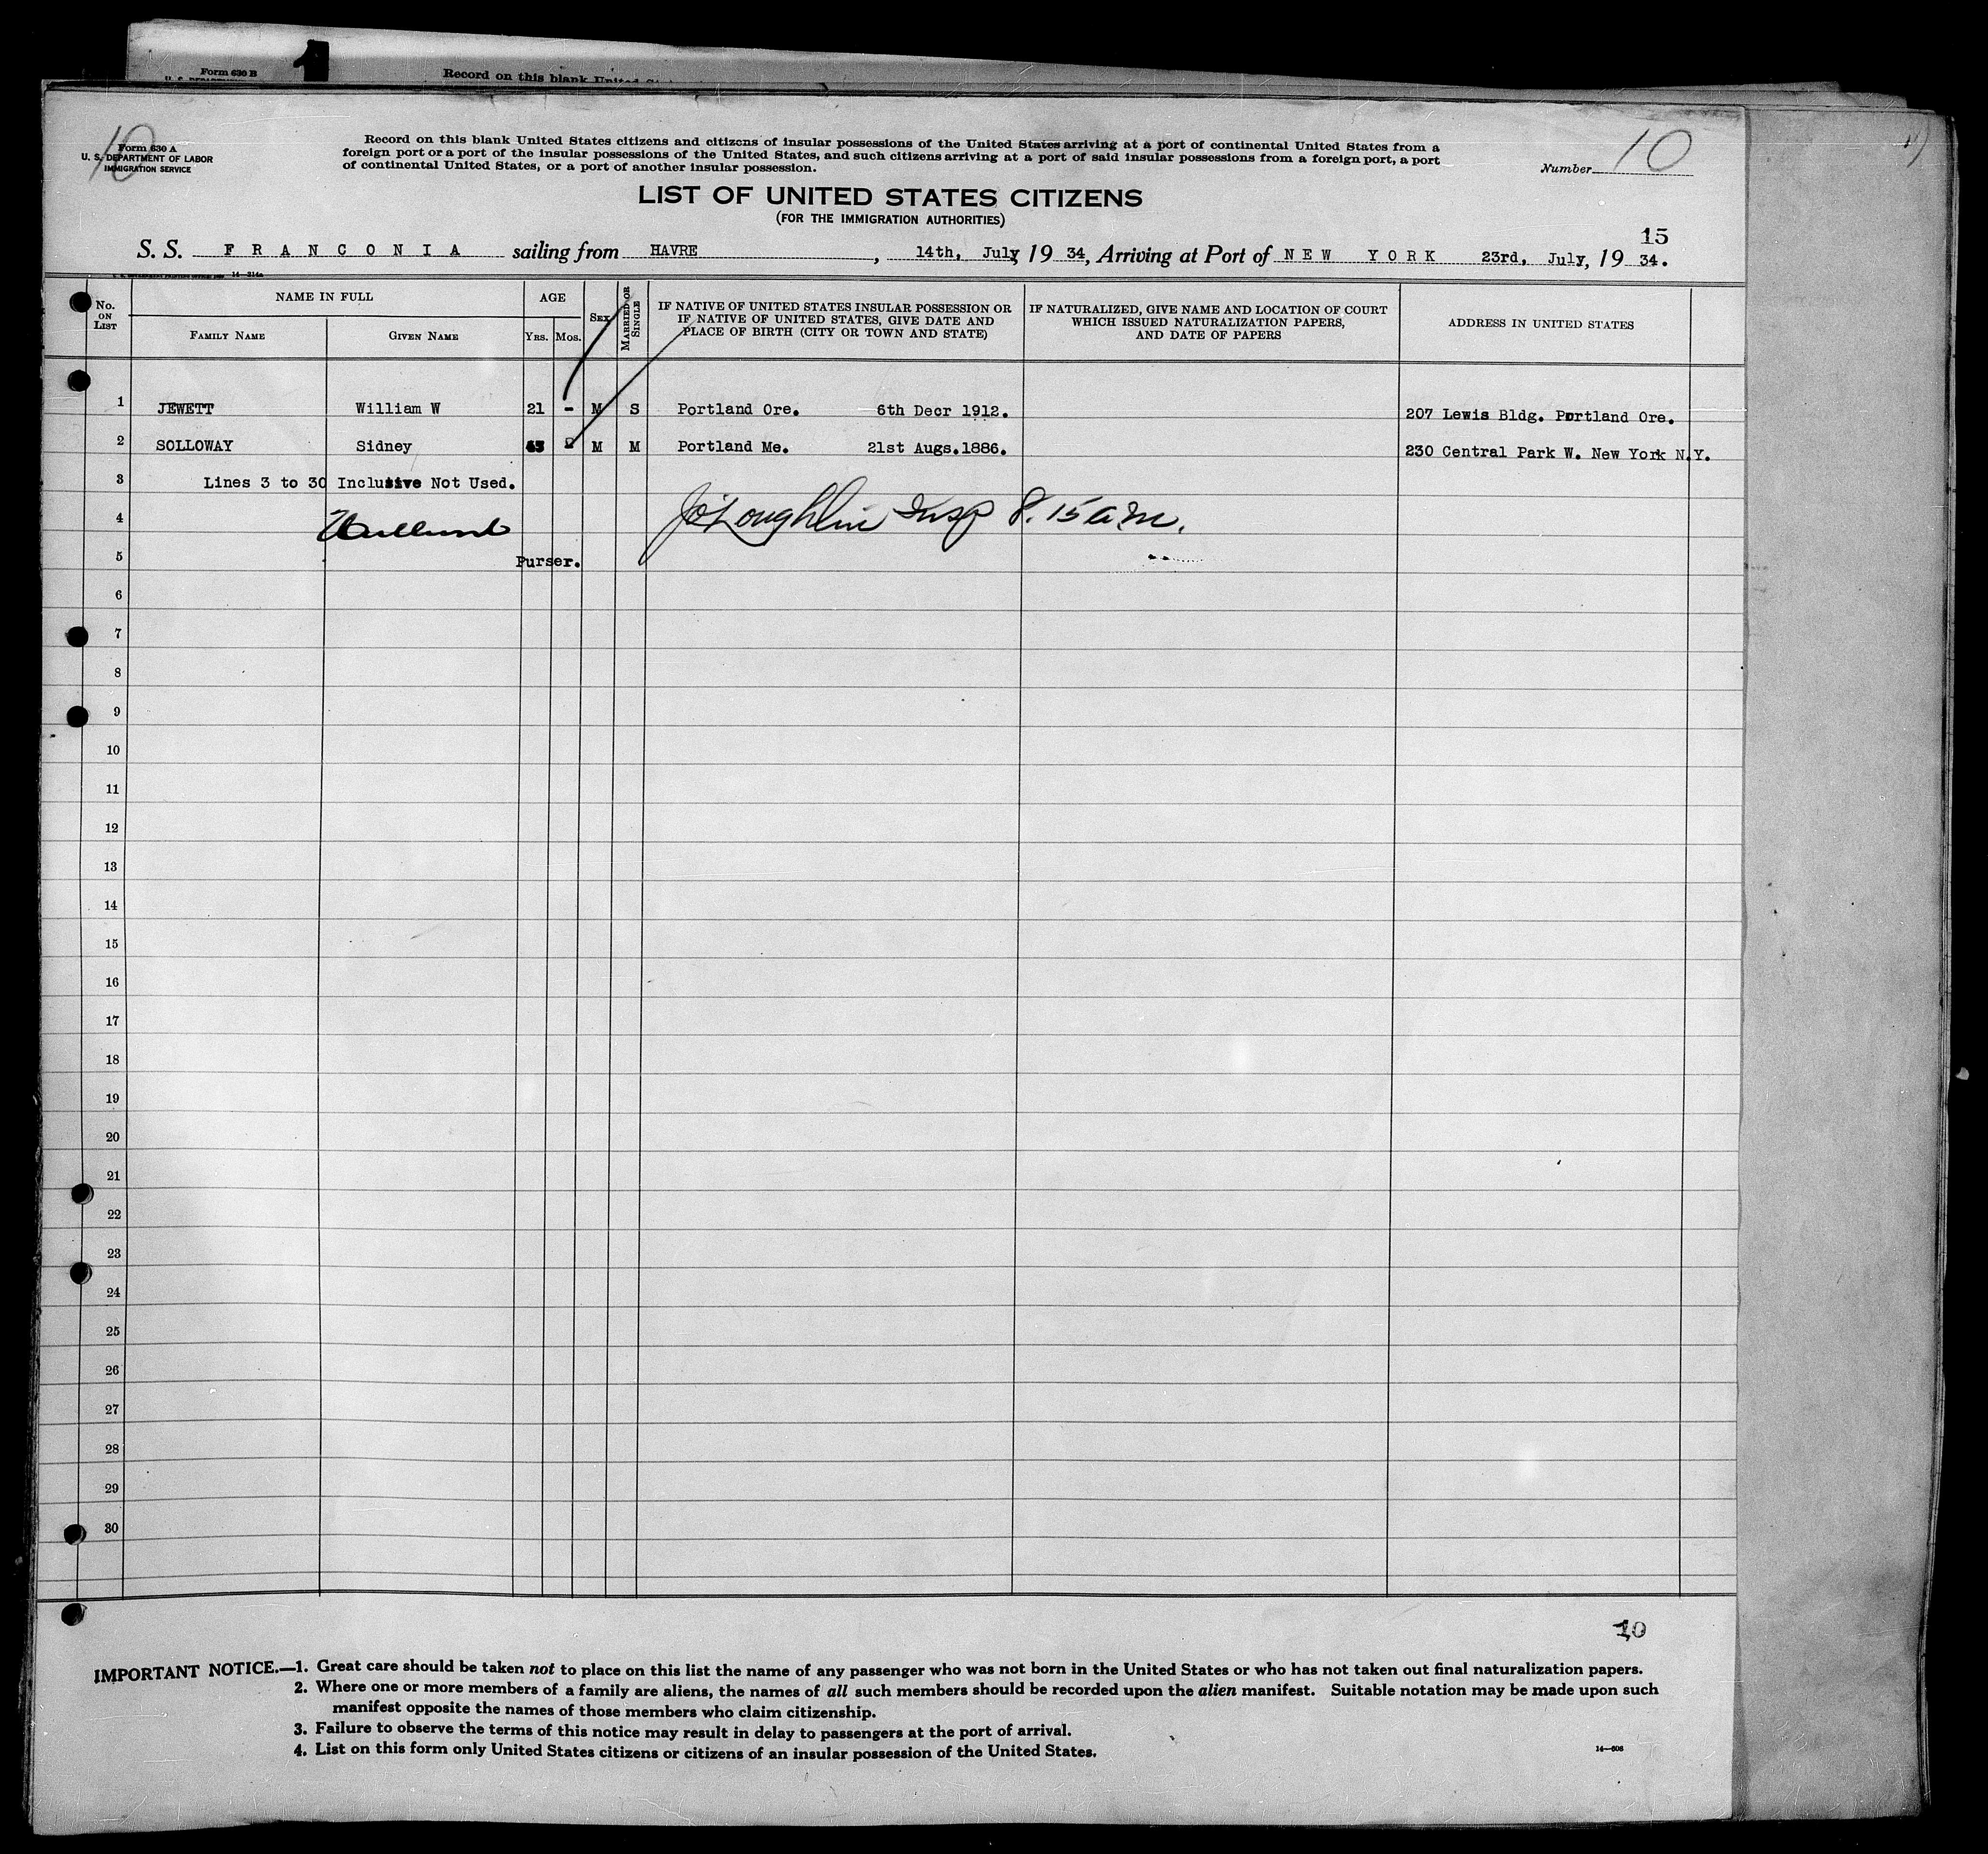 Form 630 B
Record on this blank United St
10
Form 630 A
U. S. DEPARTMENT OF LABOR
IMMIGRATION SERVICE
Record on this blank United States citizens and citizens of insular possessions of the United States arriving at a port of continental United States from a
foreign port or a port of the insular possessions of the United States, and such citizens arriving at a port of said insular possessions from a foreign port, a port
of continental United States, or a port of another insular possession.
Number 10
LIST OF UNITED STATES CITIZENS
(FOR THE IMMIGRATION AUTHORITIES)
15
S. S. FRANCONIA sailing from HAVRE, 14th, July, 19 34, Arriving at Port of NEW YORK 23rd, July, 19 34.
14—314a
No. ON LIST
NAME IN FULL
FAMILY NAME
GIVEN NAME
AGE
YRS. MOS.
SEX
MARRIED OR SINGLE
IF NATIVE OF UNITED STATES INSULAR POSSESSION OR
IF NATIVE OF UNITED STATES, GIVE DATE AND
PLACE OF BIRTH (CITY OR TOWN AND STATE)
IF NATURALIZED, GIVE NAME AND LOCATION OF COURT
WHICH ISSUED NATURALIZATION PAPERS,
AND DATE OF PAPERS
ADDRESS IN UNITED STATES
1 JEWETT William W 21 - M S Portland Ore. 6th Decr 1912. 207 Lewis Bldg. Portland Ore.
2 SOLLOWAY Sidney M M Portland Me. 21st Augs.1886. 230 Central Park W. New York N.Y.
3 Lines 3 to 30 Inclusive Not Used.
4 JO'Loughlin Insp 8.15 am.
5 Purser.
6
7
8
9
10
11
12
13
14
15
16
17
18
19
20
21
22
23
24
25
26
27
28
29
30
10
IMPORTANT NOTICE.—1. Great care should be taken not to place on this list the name of any passenger who was not born in the United States or who has not taken out final naturalization papers.
2. Where one or more members of a family are aliens, the names of all such members should be recorded upon the alien manifest. Suitable notation may be made upon such
manifest opposite the names of those members who claim citizenship.
3. Failure to observe the terms of this notice may result in delay to passengers at the port of arrival.
4. List on this form only United States citizens or citizens of an insular possession of the United States.
14—606